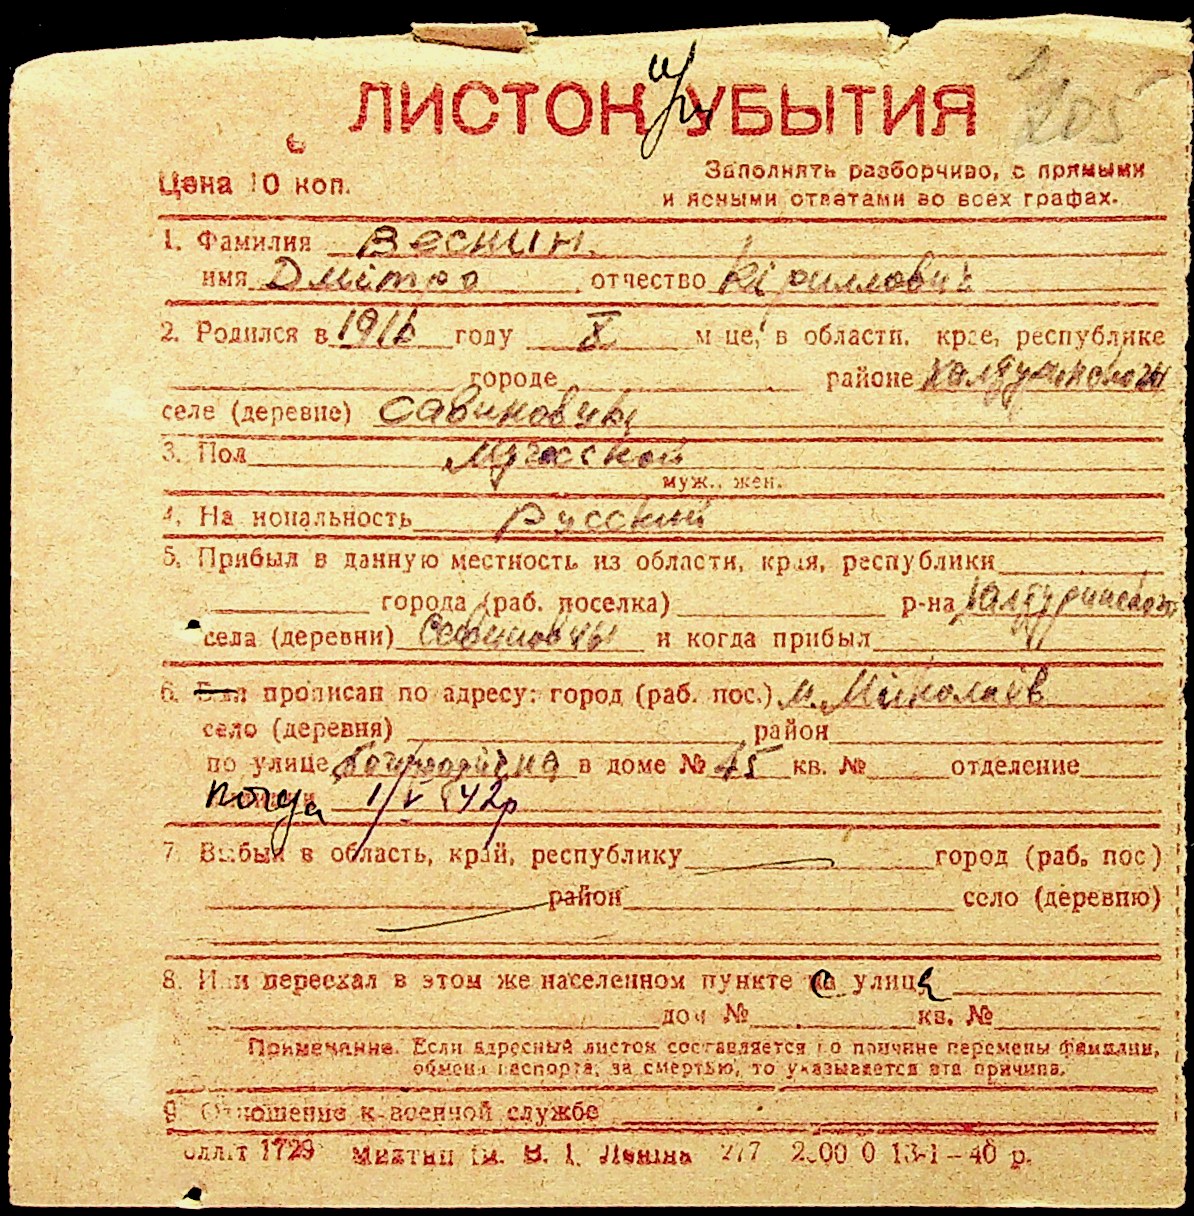 ЛИСТОК УБЫТИЯ
при
205
Цена 10 коп.
Заполнять разборчиво, с прямыми
и ясными ответами во всех графах.
1. Фамилия Веснин
имя Дмітро отчество Кіриллович
2. Родился в 1916 году X м-це, в области, крае, республике
городе районе
селе (деревне) Савиновчы
3. Пол мужской
муж., жен.
4. Национальность Русский
5. Прибыл в данную местность из области, края, республики
города (раб. поселка) р-на
села (деревни) Савиновчы и когда прибыл
6. Был прописан по адресу: город (раб. пос.) м. Міколаїв
село (деревня) район
по улице в доме № 45 кв. № отделение
когда 1/V 942р
7. Выбыл в область, край, республику город (раб. пос)
район село (деревню)
8. Или переехал в этом же населенном пункте с улице
дом № кв. №
Примечание. Если адресный листок составляется по причине перемены фамилии,
обмена паспорта, за смертью, то указывается эта причина.
9. Отношение к военной службе
1729 им. В. І. Леніна 277 13-І–40 р.